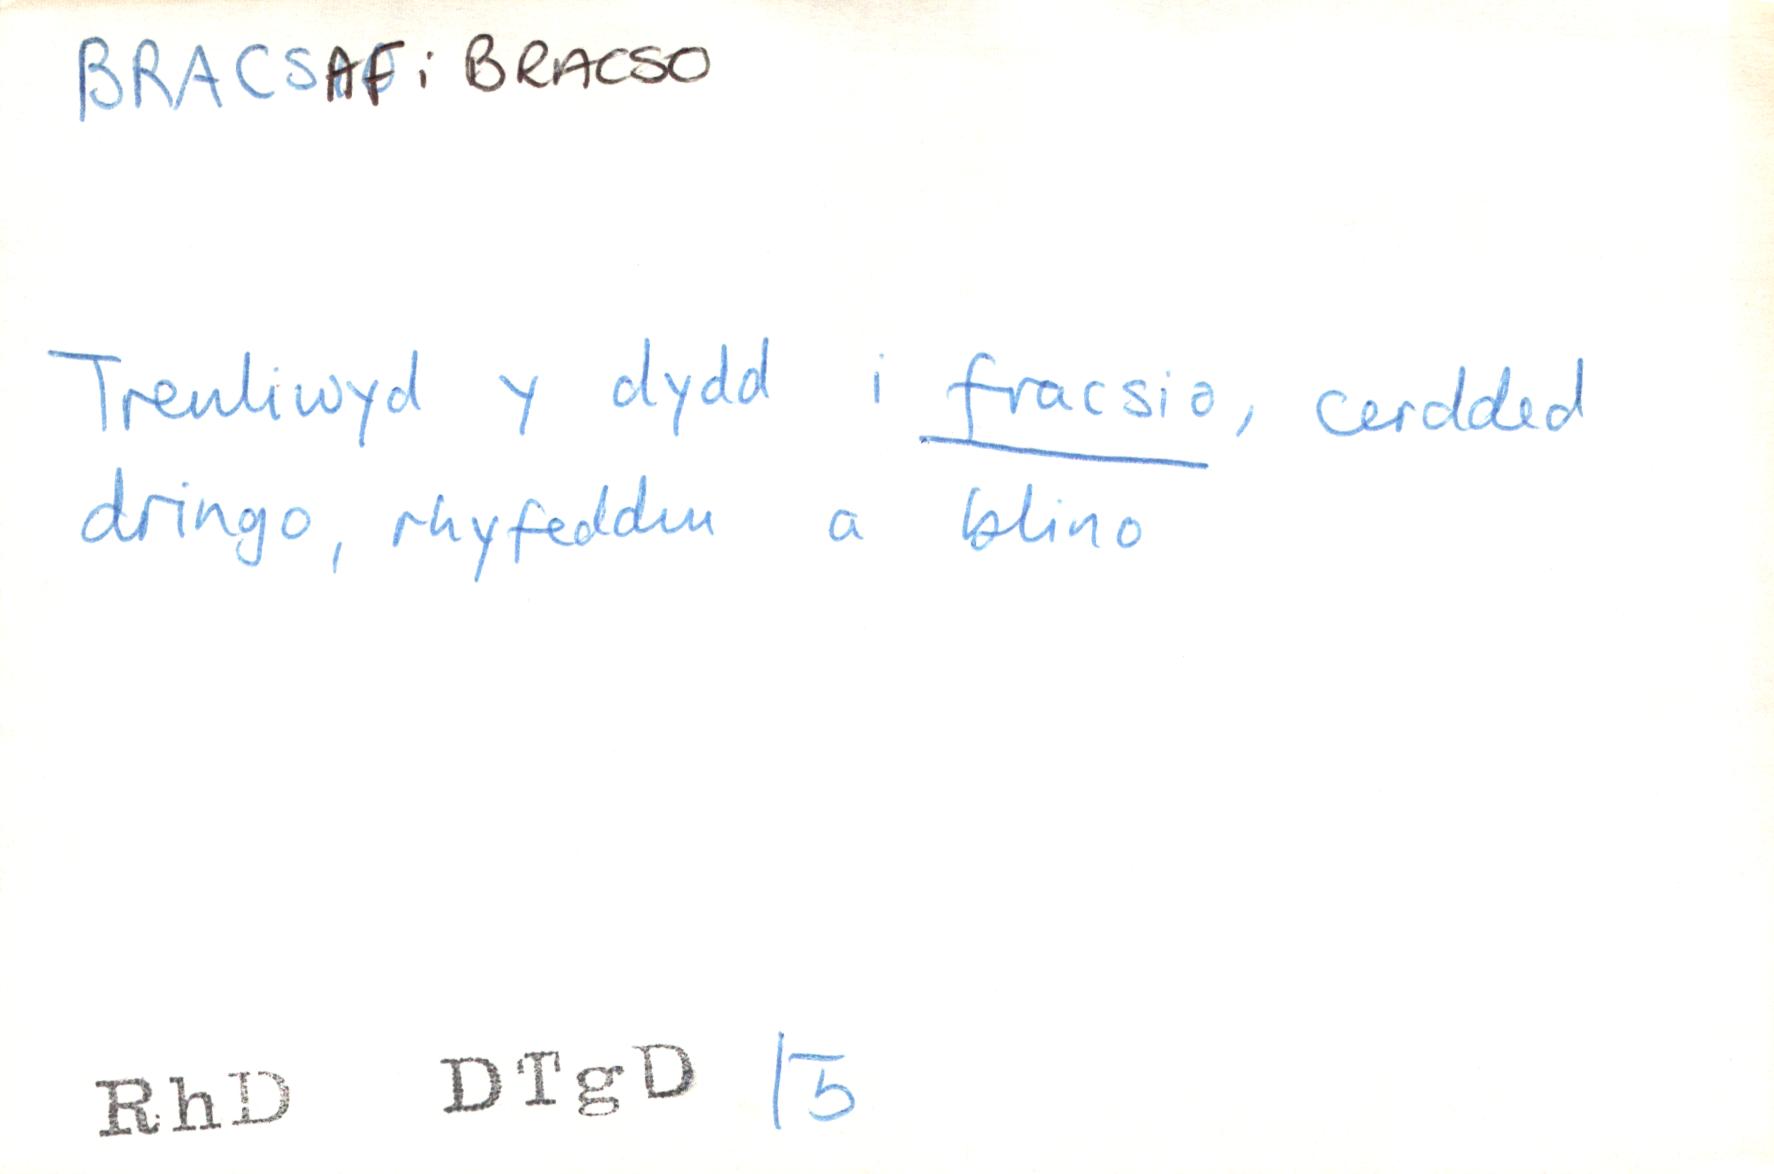 BRACSAF: BRACSO
Treuliwyd y dydd i fracsio, cerdded
dringo, rhyfeddu a blino
RhD DTgD 15